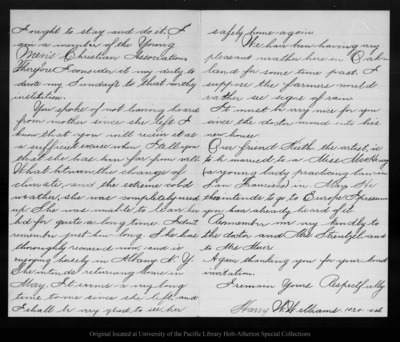 I ought to stay and do it. I
am a member of the Young
Men's Christian Association
Therefore I consider it my duty to
devote my Sundays to that worthy
institution.
You spoke of not having heard
from mother since she left. I
know that you will receive it as
a sufficient excuse when I tell you
that she has been far from well.
What between the change of
climate, and the extreme cold
weather, she was completely used
up. She was unable to leave her
bed for quite a long time. I don't
remember just how long. She has
thoroughly recovered now, and is
enjoying herself in Albany N.Y.
She intends returning home in
May. It seems a very long
time to me since she left, and
I shall be very glad to see her
safely home again.
We have been having very
pleasant weather here in Oak-
land for some time past. I
suppose the farmers would
rather see signs of rain.
It must be very nice for you
since the doctor moved into his
new house.
Our friend Keith the artist, is
to be married to a Miss McHenry
(a young lady practicing law in
San Francisco) in May. He
then intends to go to Europe. I presume
you have already heard of it.
Remember me very kindly to
the doctor and Mrs. Strentzel, and
to Mrs. Muir.
Again thanking you for your kind
invitation.
I remain Yours Respectfully
Harry W Williams
Original located at University of the Pacific Library Holt-Atherton Special Collections